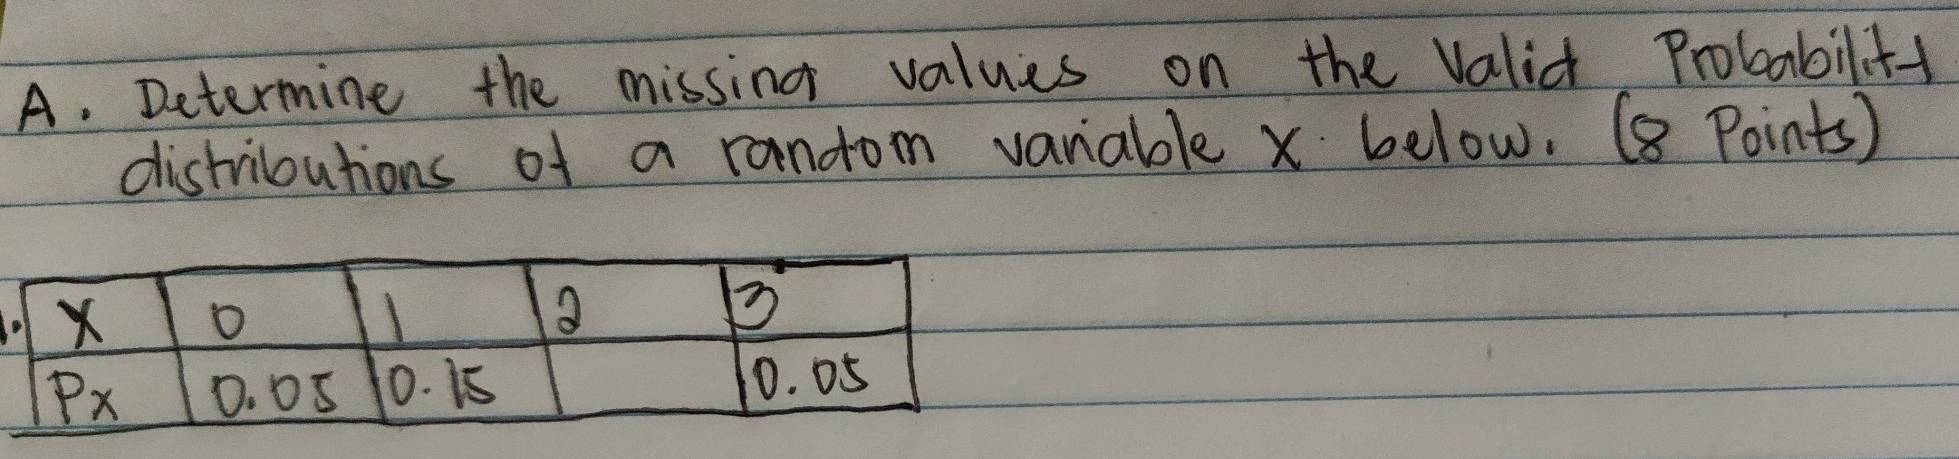 A. Determine the missing values on the Valid Probability
distributions of a random variable x below. (8 Points)
1. X 0 1 2 3
Px 0.05 0.15 0.05